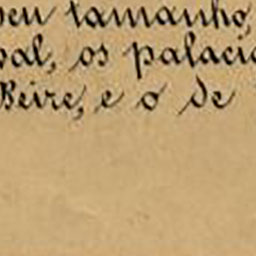 seu tamanho,
pal, os palacio
Beire, e o de